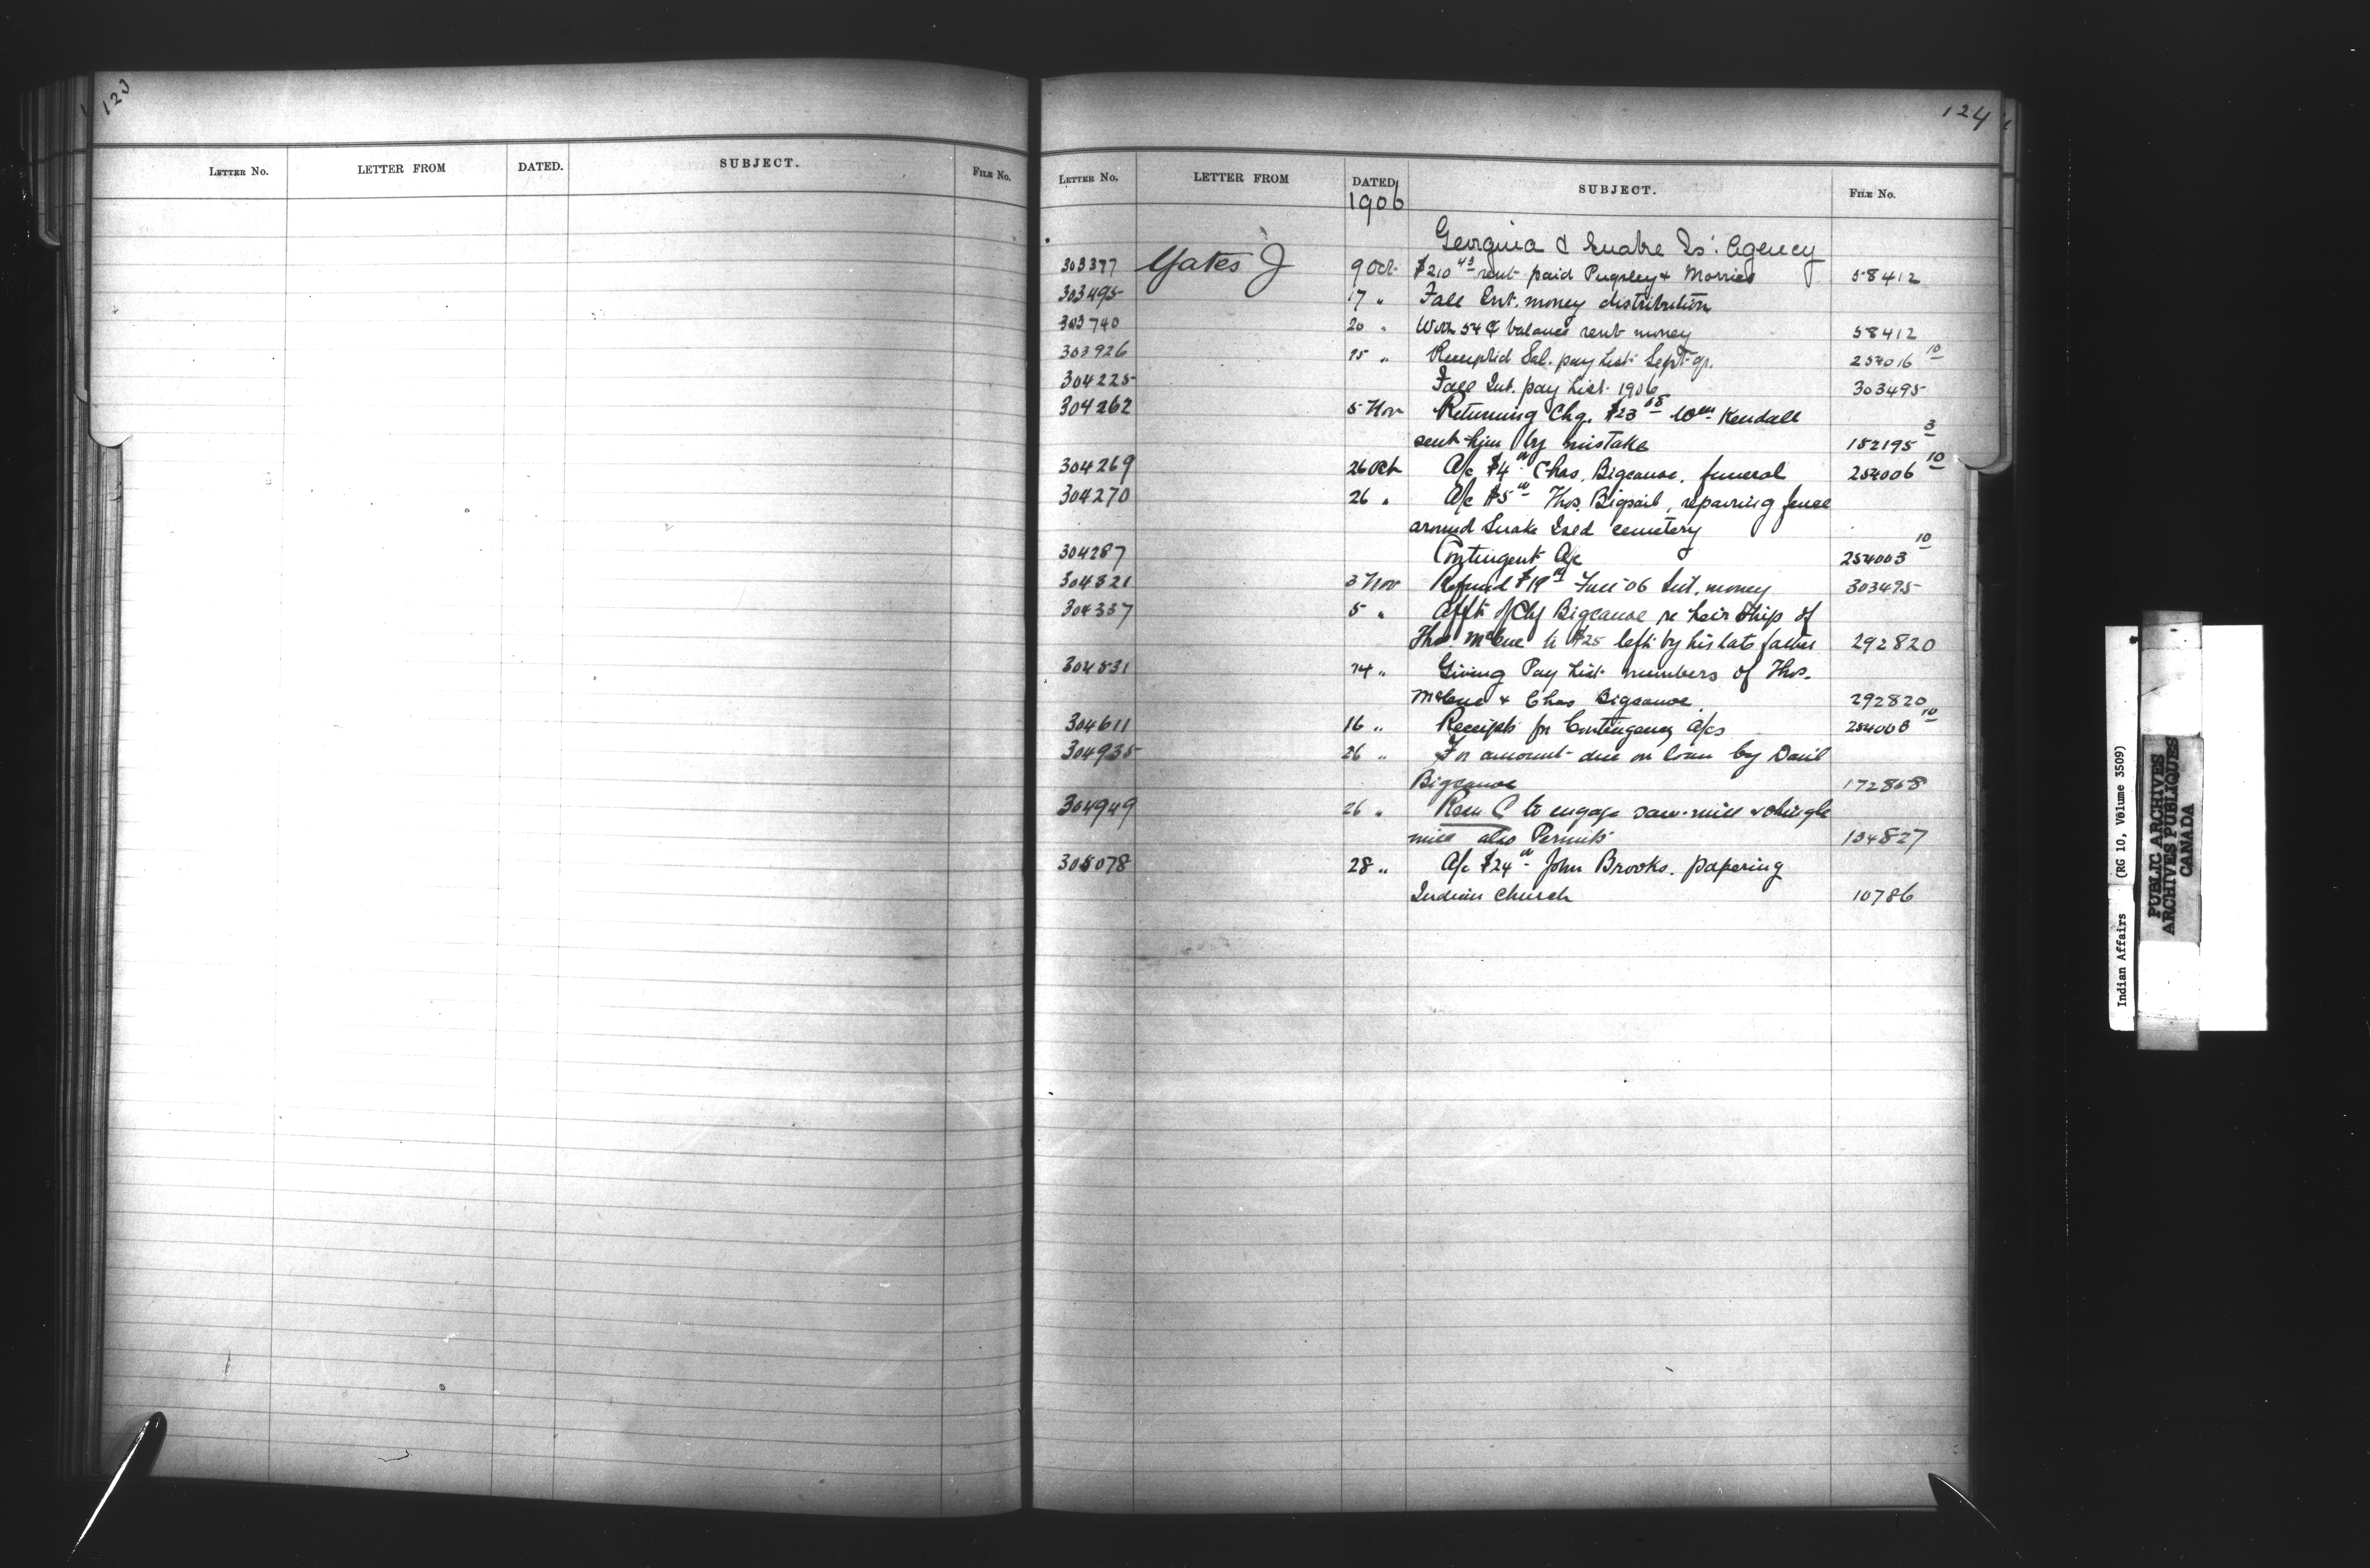 123
LETTER NO. LETTER FROM DATED. SUBJECT. FILE NO.
124
LETTER NO. LETTER FROM DATED SUBJECT. FILE NO.
1906
Georgina & Snake Is. Agency
303377 Yates J 9 Oct $210 43 rent paid Pugsley & Morries 58412
303495 17 " Fall Int. money distribution
303740 20 " With 54 ¢ balance rent money 58412
303926 15 " Receipted Sal. pay List Sept qr. 254016 10
304225 Fall Int. pay List 1906 303495
304262 5 Nov Returning Chq. $23 Wm Kendall
sent him by mistake 182195 3
304269 26 Oct A/c $4 Chas. Bigcanoe, funeral 254006 10
304270 26 " A/c $5 Thos. Bigsail, repairing fence
around Snake Isld cemetery
304287 Contingent A/c 254003 10
304321 3 Nov Refund $19 Fall 06 Int. money 303495
304337 5 " Affdt of Chf Bigcanoe re heir ship of
Thos. McCue to $25 left by his late father 292820
304531 14 " Giving Pay List numbers of Thos.
McCue & Chas Bigcanoe 292820
304611 16 " Receipts for Contingency A/cs 254003 10
304935 26 " For amount due on loan by Danl
Bigcanoe 172868
304949 26 " Rem C to engage saw-mill & shingle
mill also Permit 134827
305078 28 " A/c $24 John Brooks. papering
Indian Church 10786
Indian Affairs (RG 10, Volume 3509)
PUBLIC ARCHIVES
ARCHIVES PUBLIQUES
CANADA